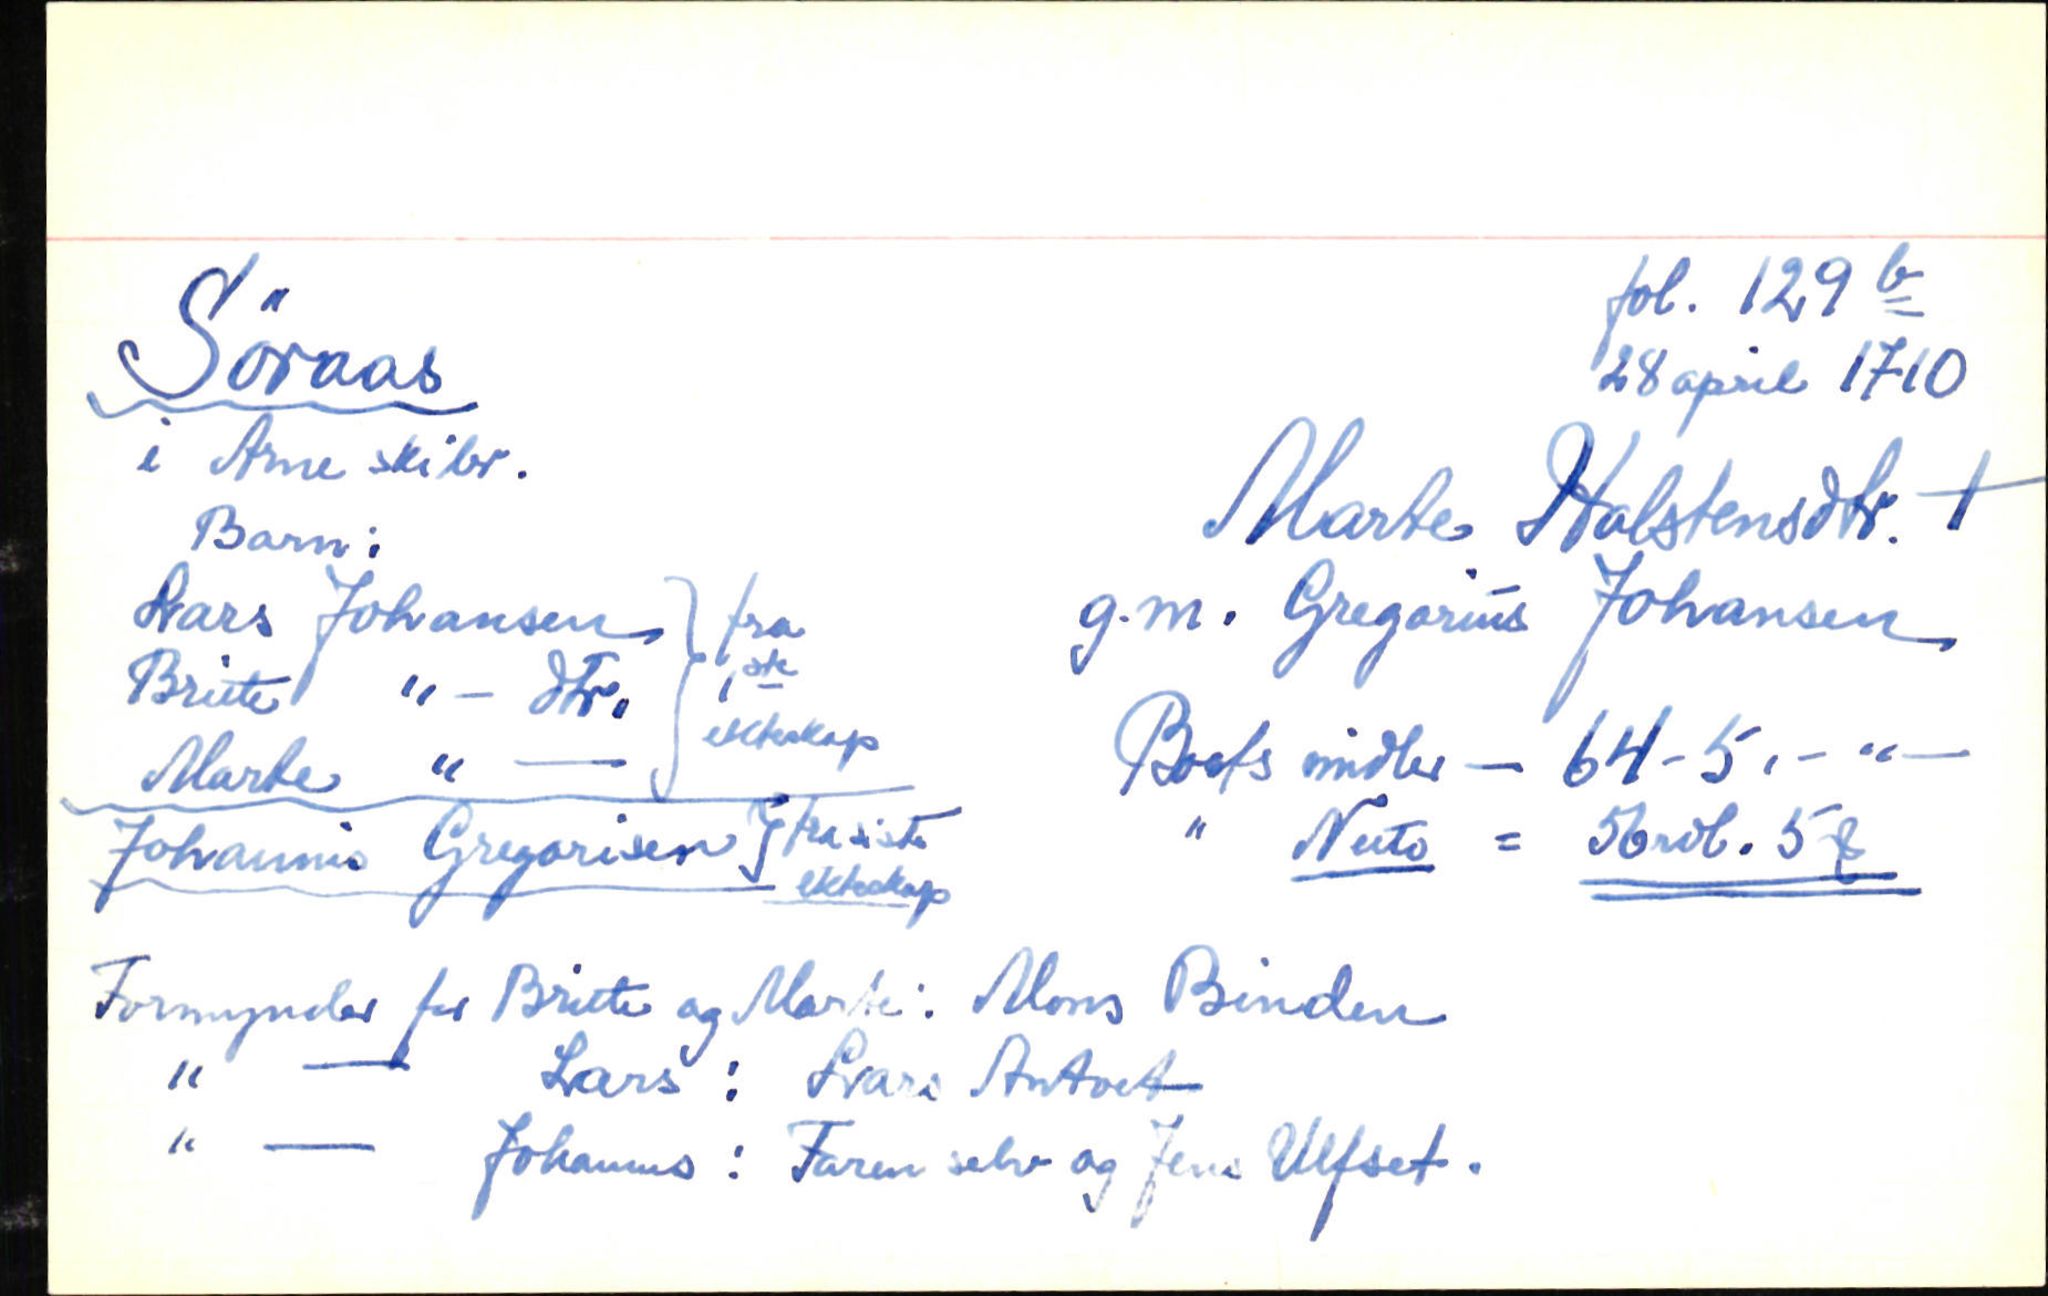 fol. 129 b
28 april 1710
Söraas
i Arne skibr.
Marte Halstensdtr. †
g.m. Gregorius Johansen
Barn:
Lars Johansen
Britte " — dtr.
Marte " —
} fra
1 ste
ekteskap
Johannis Gregorisen } fra siste
ekteskap
Boets midler — 64 - 5 . - " —
" Netto = 56 rdl. 5 β
Formynder for Britte og Marte: Mons Binden
" — Lars: Lars Antvet
" — Johannis: Faren selv og Jens Ulfset.